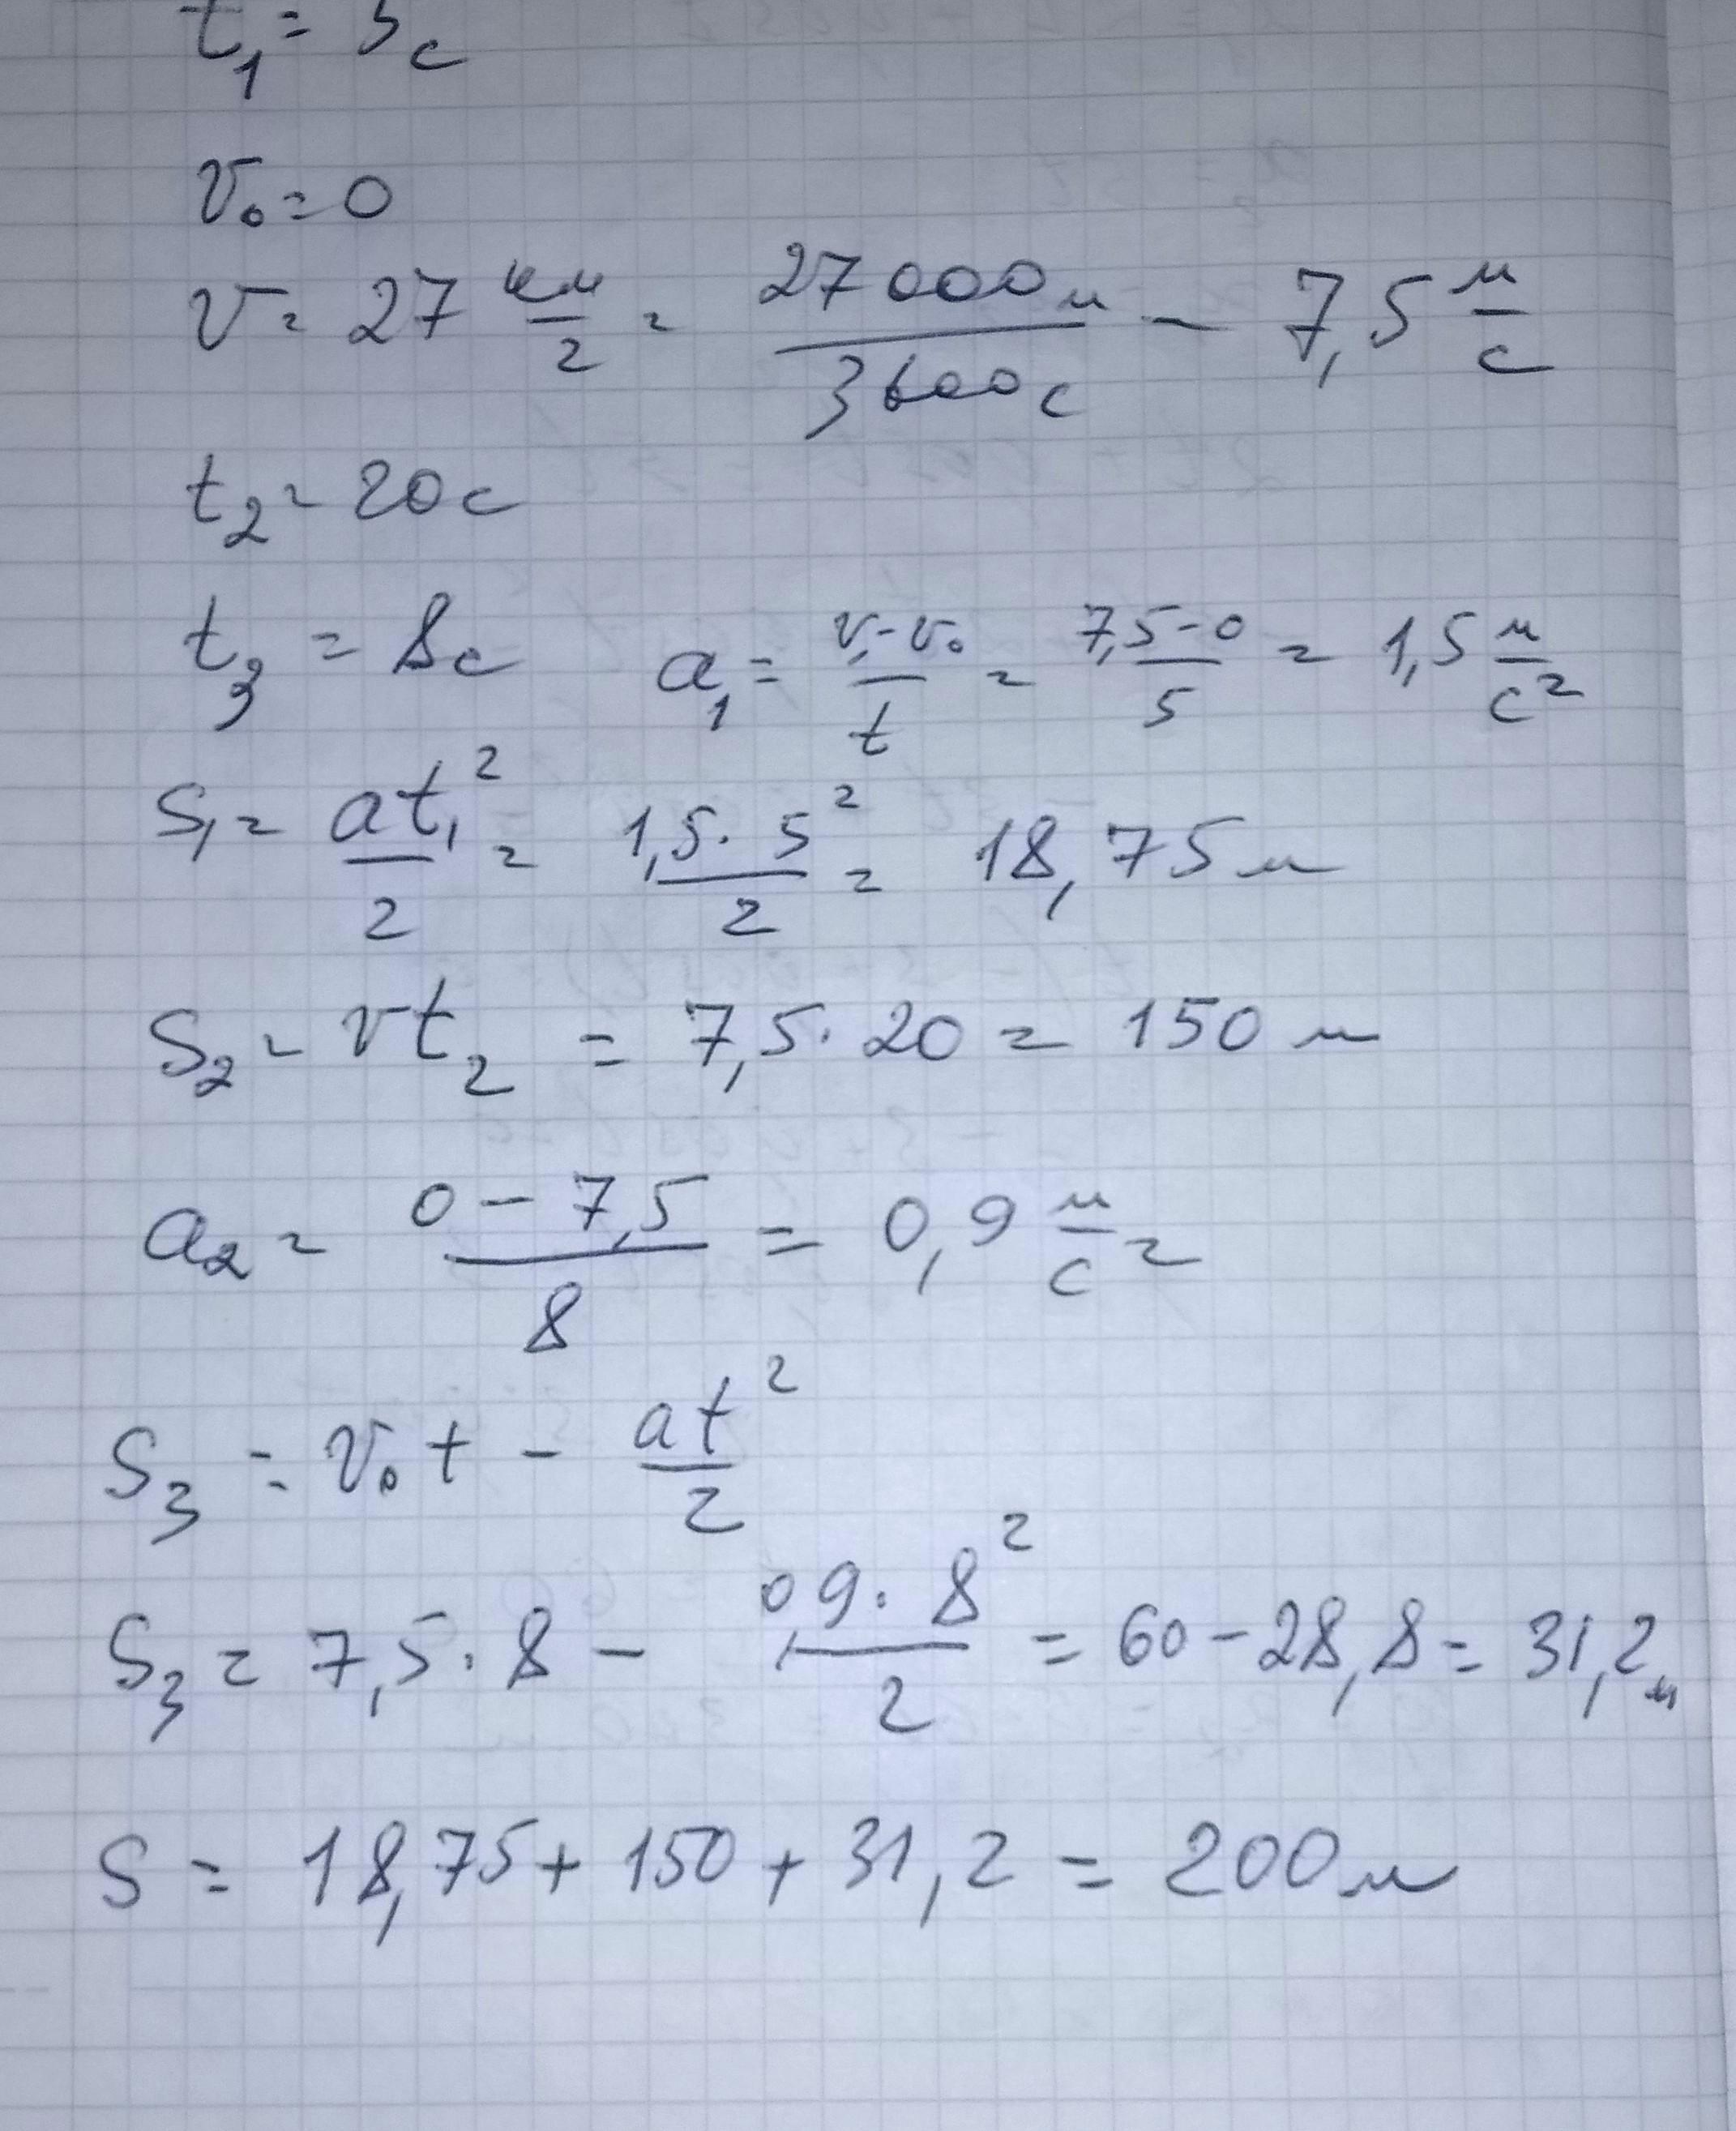 t₁ = 5с
v₀ = 0
v = 27 км/г = 27000м/3600с = 7,5 м/с
t₂ = 20с
t₃ = 8с a₁ = v₁-v₀/t = 7,5-0/5 = 1,5 м/с²
S₁ = at₁²/2 = 1,5·5²/2 = 18,75м
S₂ = vt₂ = 7,5·20 = 150м
a₂ = 0-7,5/8 = 0,9 м/с²
S₃ = v₀t - at²/2
S₃ = 7,5·8 - 0,9·8²/2 = 60-28,8 = 31,2м
S = 18,75+150+31,2 = 200м